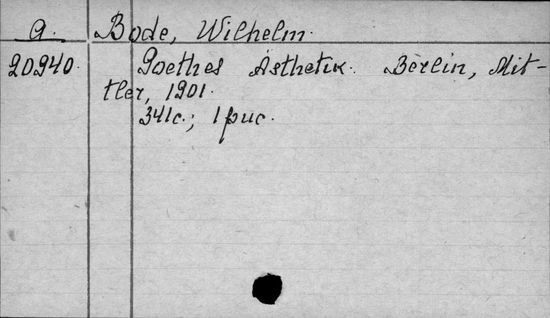 A. Bode, Wilhelm.
20940. Goethes Ästhetik. Berlin, Mit-
tler, 1901.
341c.; 1 рис.